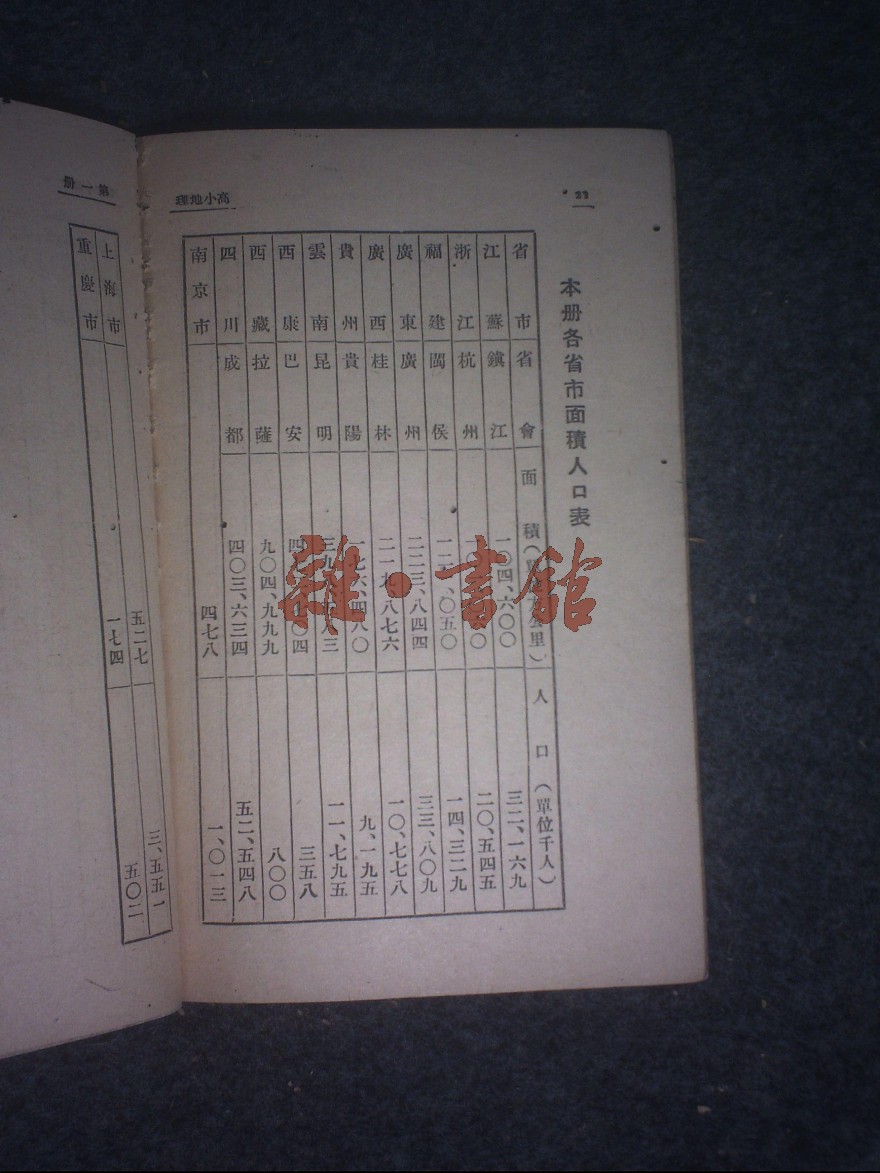 高小地理
本册各省市面積人口表
省市 省會 面積（ 公里） 人口（單位千人）
江蘇 鎮江 一〇四、六〇〇 三二、一六九
浙江 杭州 二〇、五四五
福建 閩侯 一四、三二九
廣東 廣州 二二三、八四四 三三、八〇九
廣西 桂林 二一九、八七六 一〇、七七八
貴州 貴陽 一七六、四八〇 九、一九五
雲南 昆明 一一、七九五
西康 巴安 三五八
西藏 拉薩 九〇四、九九九 八〇〇
四川 成都 四〇三、六三四 五二、五四八
南京市 四七八 一、〇一三
第一册
上海市 五二七 三、五五一
重慶市 一七四 五〇二
雜·書館